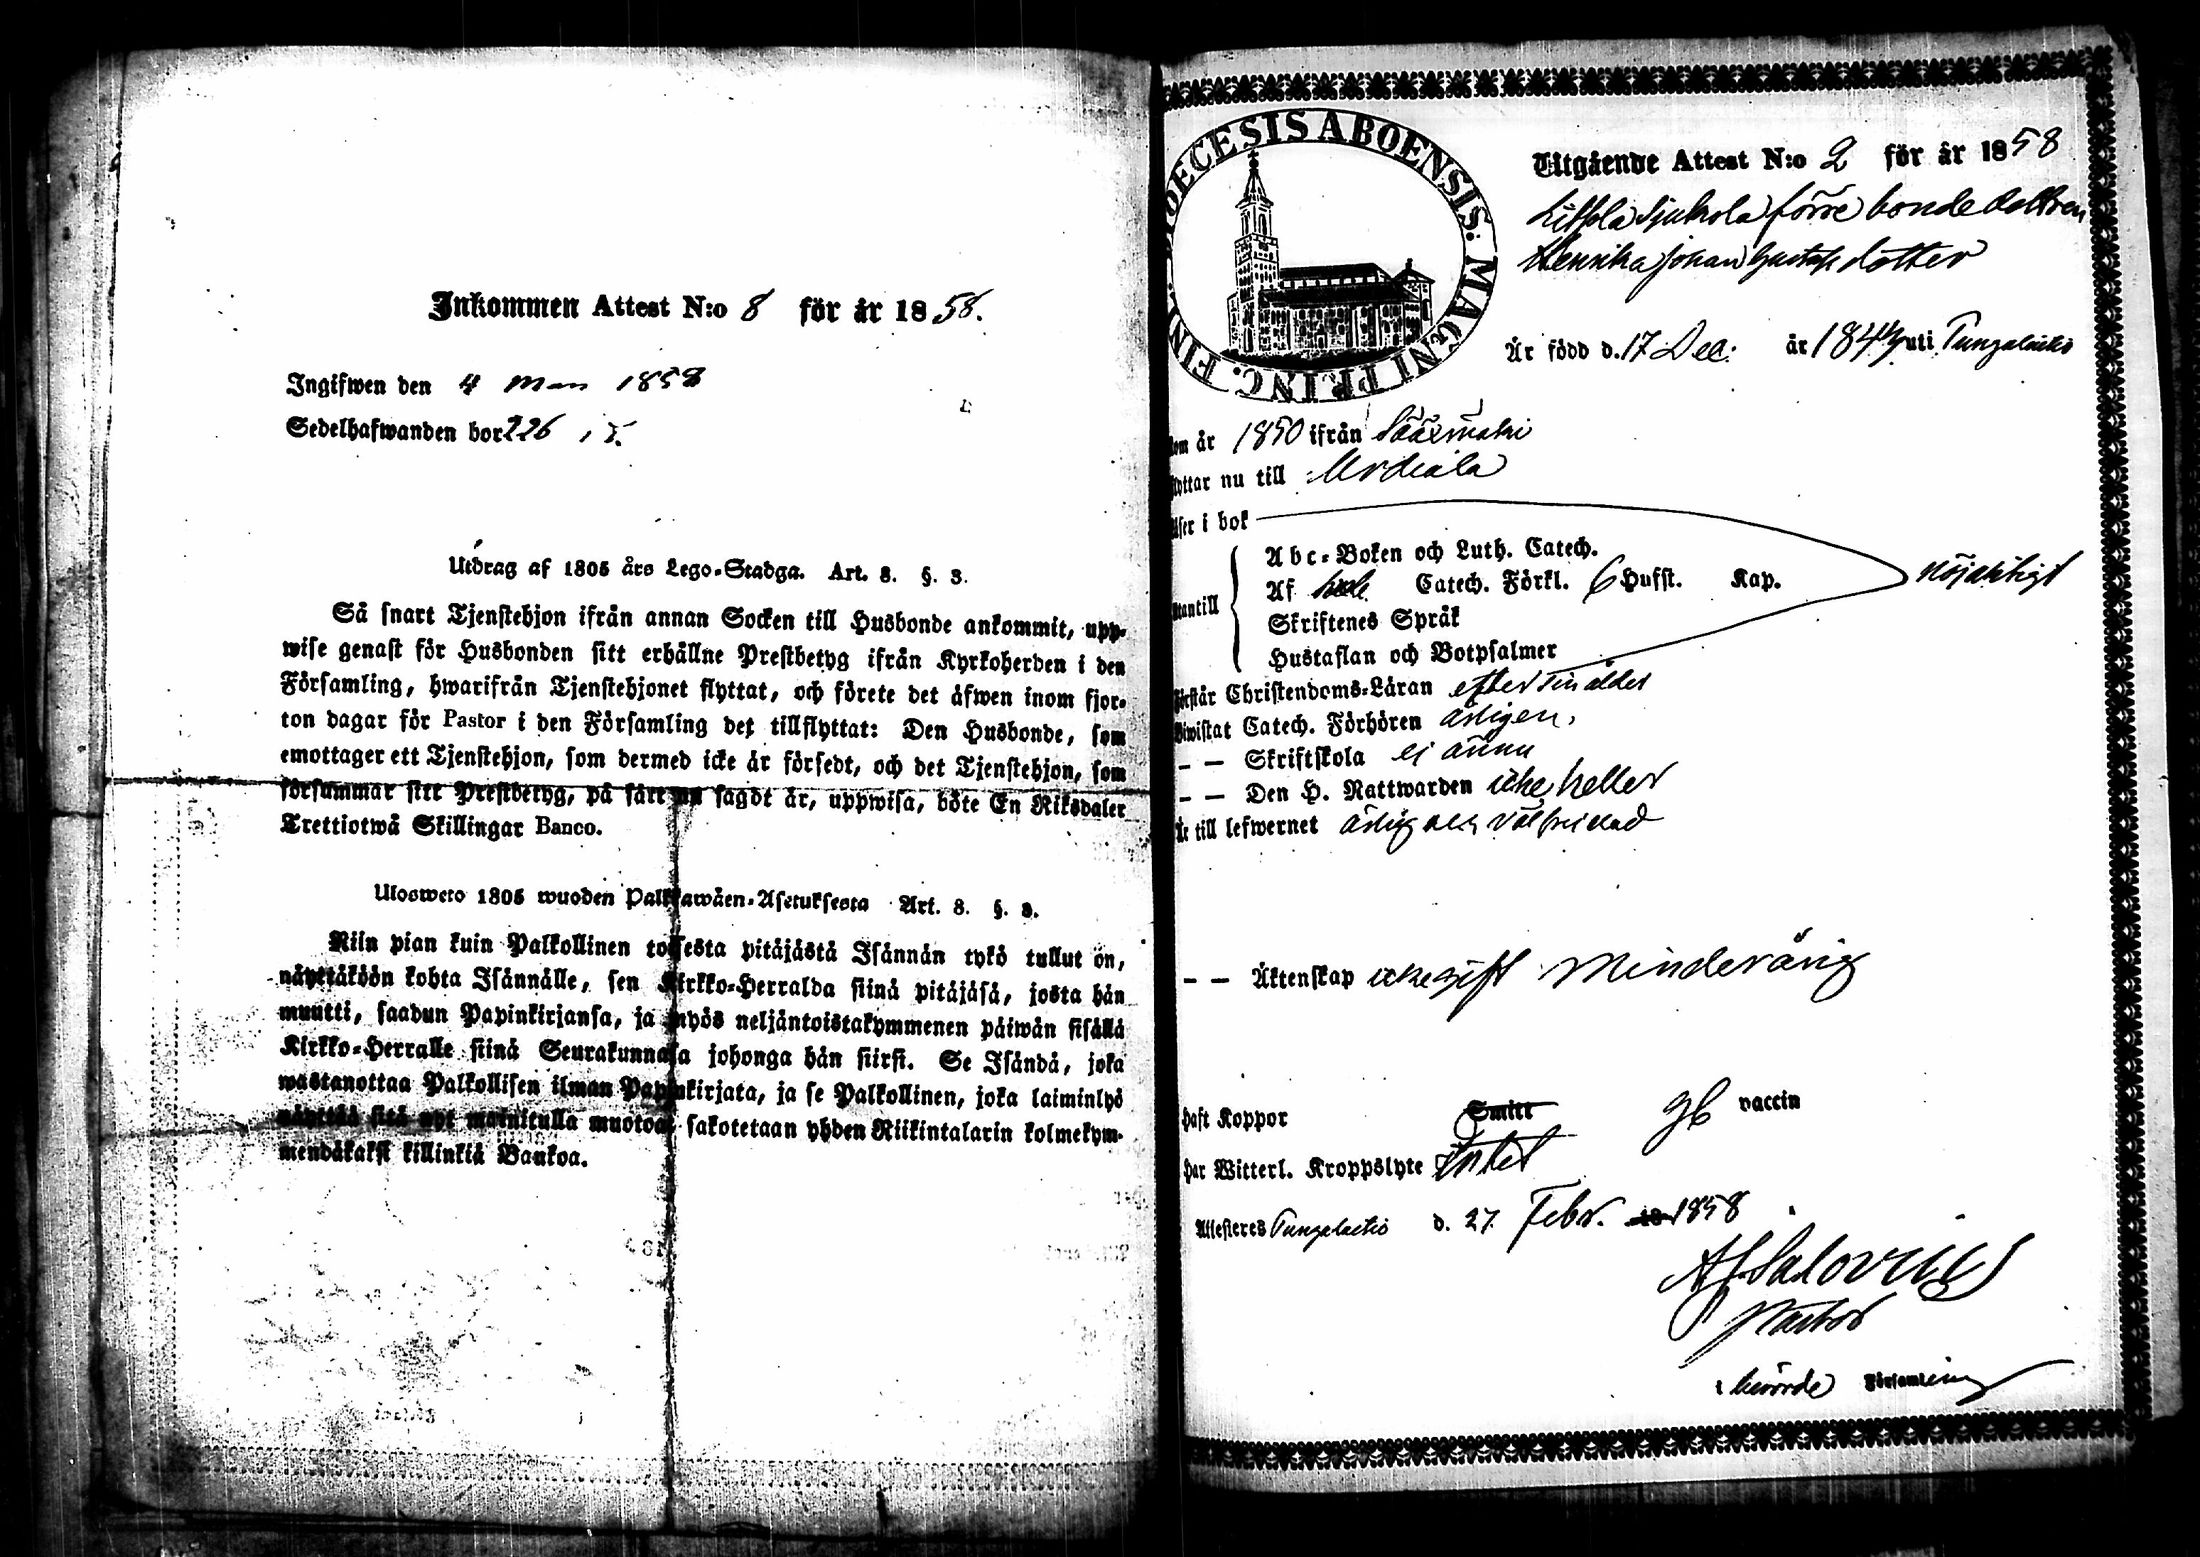 Inkommen Attest N:o 8 för år 1858.
Ingifwen den 4 1858
Sedelhafwanden bor 226
Utdrag af 1805 års Lego-Stadga. Art. 8. §. 3.
Så snart Tjenstehjon ifrån annan Socken till Husbonde ankommit, upp-
wise genast för Husbonden sitt erhållne Prestbetyg ifrån Kyrkoherden i den
Församling, hwarifrån Tjenstehjonet flyttat, och förete det äfwen inom fjor-
ton dagar för Pastor i den Församling det tillflyttat: Den Husbonde, som
emottager ett Tjenstehjon, som dermed icke är försedt, och det Tjenstehjon, som
försummar sitt Prestbetyg, på sätt nu sagdt är, uppwisa, böte En Riksdaler
Trettiotwå Skillingar Banco.
Ulosweto 1805 wuoden Palkkawäen-Asetuksesta Art. 8. §. 3.
Niin pian kuin Palkollinen toisesta pitäjästä Isännän tykö tullut on,
näyttäköön kohta Isännälle, sen Kirkko-Herralda siinä pitäjäsä, josta hän
muutti, saadun Papinkirjansa, ja myös neljäntoistakymmenen päiwän sisällä
Kirkko-Herralle siinä Seurakunnasa johonga hän siirsi. Se Isändä, joka
wastanottaa Palkollisen ilman Papinkirjata, ja se Palkollinen, joka laiminlyö
näyttää sitä nyt mainitulla muotoa, sakotetaan yhden Riikintalarin kolmekym-
mendäkaksi killinkiä Bankoa.
DIOECESIS ABOENSIS: MAGNI PRINC. FINL.
Utgående Attest N:o 2 för år 1858
förre bonde dottren
Henrika Johan Gustafs dotter
Är född d. 17 Dec: år 1844 uti Tungelaitio
kom år 1850 ifrån Sääxmäki
flyttar nu till Urdiala
Läser i bok
Abc-Boken och Luth. Catech.
Af hela Catech. Förkl. 6 Hufst. Kap. nöjaktigt
Utantill
Skriftenes Språk
Hustaflan och Botpsalmer
Förstår Christendoms-Läran efter sin ålder
Biwistat Catech. Förhören årligen.
– – Skriftskola ej ännu
– – Den H. Nattwarden icke heller
Är till lefwernet ärlig och välfrejdad
– – Äktenskap icke gift Minderårig
Haft Koppor Smitt gb vaccin
Har Witterl. Kroppslyte Intet
Attesteres Tungelaitio d. 27. Febr. 18 1858
Pastor
i berörde Församling